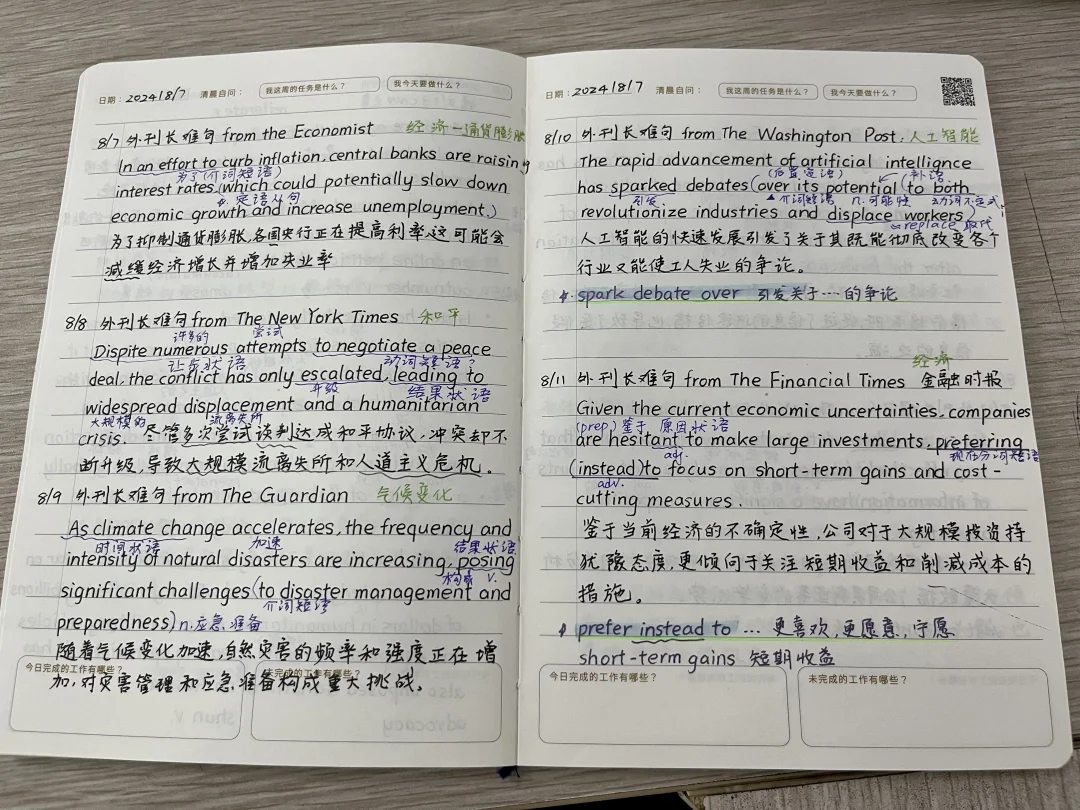 日期：2024/8/7 清晨自问： 我这周的任务是什么？ 我今天要做什么？
8/7 外刊长难句 from the Economist 经济—通货膨胀
In an effort to curb inflation, central banks are raising
为了(介词短语)
interest rates (which could potentially slow down
定语从句
economic growth and increase unemployment.)
为了抑制通货膨胀,各国央行正在提高利率,这可能会
减缓经济增长并增加失业率
8/8 外刊长难句 from The New York Times 和平
许多的 尝试
Dispite numerous attempts to negotiate a peace
让步状语 动词短语?
deal, the conflict has only escalated, leading to
升级 结果状语
widespread displacement and a humanitarian
大规模的 流离失所
crisis. 尽管多次尝试谈判达成和平协议,冲突却不
断升级,导致大规模流离失所和人道主义危机。
8/9 外刊长难句 from The Guardian 气候变化
As climate change accelerates, the frequency and
时间状语 加速 结果状语
intensity of natural disasters are increasing, posing
构成 v.
significant challenges (to disaster management and
介词短语
preparedness) n.应急准备
随着气候变化加速,自然灾害的频率和强度正在增
加,对灾害管理和应急准备构成重大挑战。
今日完成的工作有哪些？ 未完成的工作有哪些？
日期：2024/8/7 清晨自问： 我这周的任务是什么？ 我今天要做什么？
8/10 外刊长难句 from The Washington Post. 人工智能
The rapid advancement of artificial intellignce
(后置定语) 补语
has sparked debates (over its potential (to both
引发 介词短语 n.可能性 动词不定式
revolutionize industries and displace workers)
replace 取代
人工智能的快速发展引发了关于其既能彻底改变各个
行业又能使工人失业的争论。
spark debate over 引发关于…的争论
经济
8/11 外刊长难句 from The Financial Times 金融时报
Given the current economic uncertainties, companies
(prep) 鉴于 原因状语
are hesitant to make large investments, preferring
adj. 现在分词短语
(instead) to focus on short-term gains and cost-
adv.
cutting measures.
鉴于当前经济的不确定性,公司对于大规模投资持
犹豫态度,更倾向于关注短期收益和削减成本的
措施。
prefer instead to … 更喜欢,更愿意,宁愿
short-term gains 短期收益
今日完成的工作有哪些？ 未完成的工作有哪些？